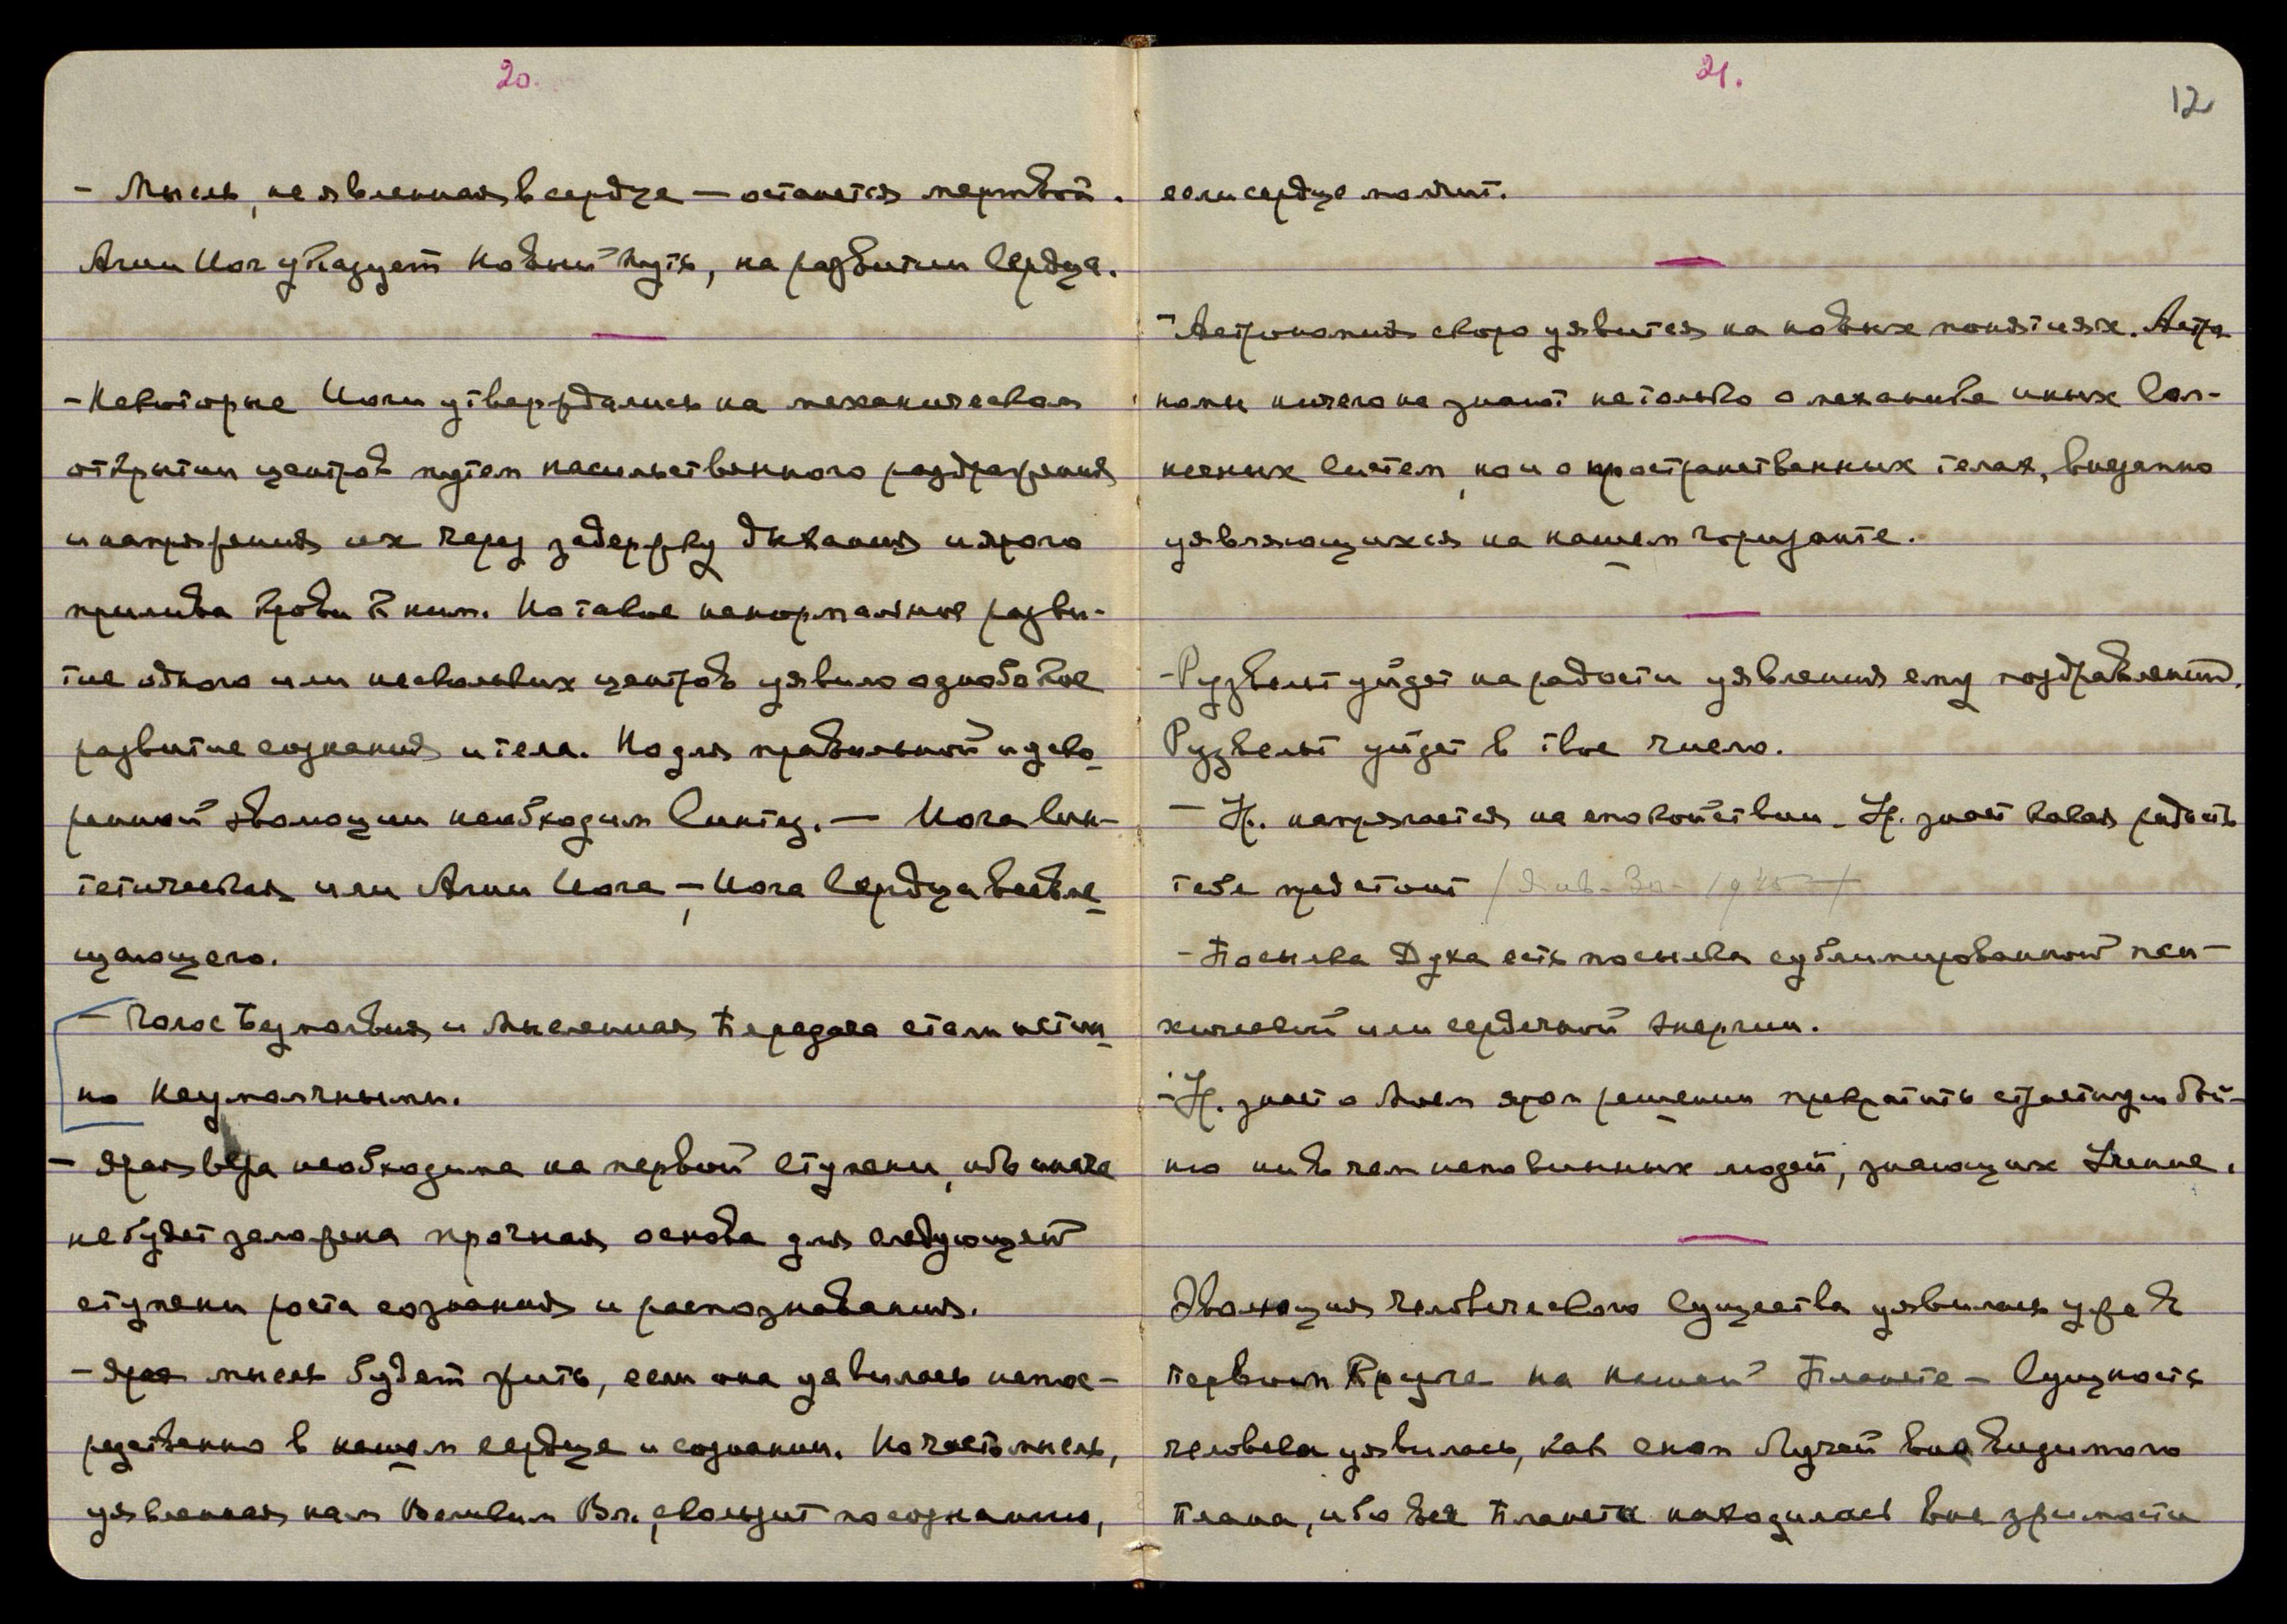 20.
- Мысль, не явленная в сердце — останется мертвой.
Агни Йог указует Новый Путь, на развитии Сердца.
- Некоторые Йоги утверждались на механическом
открытии центров путем насильственного раздражения
и напряжения их через задержку дыхания и ярого
прилива крови к ним. Но такое ненормальное разви-
тие одного или нескольких центров уявило однобокое
развитие сознания и тела. Но для правильной и уско-
ренной эволюции необходим Синтез. — Йога Син-
тетическая или Агни Йога — Йога Сердца всевме-
щающего.
- Голос Безмолвия и Мысленная Передача стали истин-
но неумолчными.
- Ярая вера необходима на первой ступени, ибо иначе
не будет заложена прочная основа для следующей
ступени роста сознания и распознавания.
- Ярая мысль будет жить, если она уявилась непос-
редственно в нашем сердце и сознании. Но часто мысль,
уявленная нам Великим Вл., скользит по сознанию,
21.
12
если сердце молчит.
- Астрономия скоро уявится на новых понятиях. Астро
номы ничего не знают не только о механике иных Сол-
нечных Систем, но и о пространственных телах, внезапно
уявляющихся на нашем горизонте.
- Рузвельт уйдет на радости уявления ему поздравлений.
Рузвельт уйдет в твое число.
- Ур. напрягается на спокойствии. Ур. знает какая радость
тебе предстоит
- Посылка Духа есть посылка сублимированной пси-
хической или сердечной энергии.
- Ур. знает о Моем яром решении прекратить страстную бой-
ню ни в чем неповинных людей, знающих Учение.
Эволюция человеческого Существа уявилась уже в
Первом Круге на нашей Планете — Сущность
человека уявилась, как сноп Лучей вне видимого
плана, ибо вся Планета находилась вне зримости